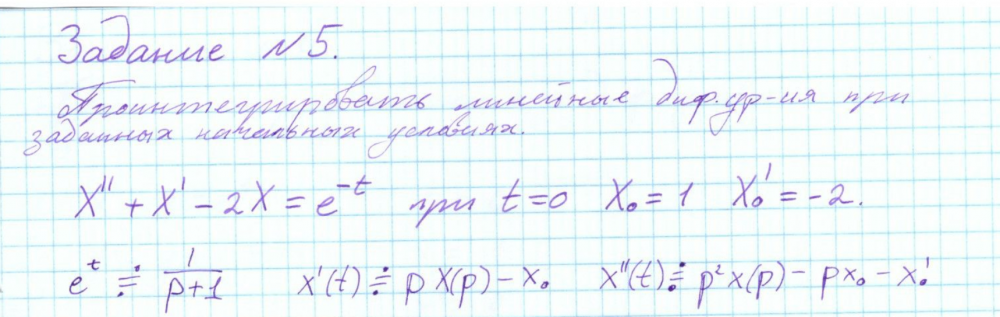 Задание №5.
Проинтегрировать линейные диф.ур-ия при
заданных начальных условиях.
X'' + X' - 2X = e^{-t} при t=0 X₀ = 1 X₀' = -2.
e^t ≓ 1/(p+1) x'(t) ≓ p X(p) - x₀ x''(t) ≓ p² x(p) - p x₀ - x₀'